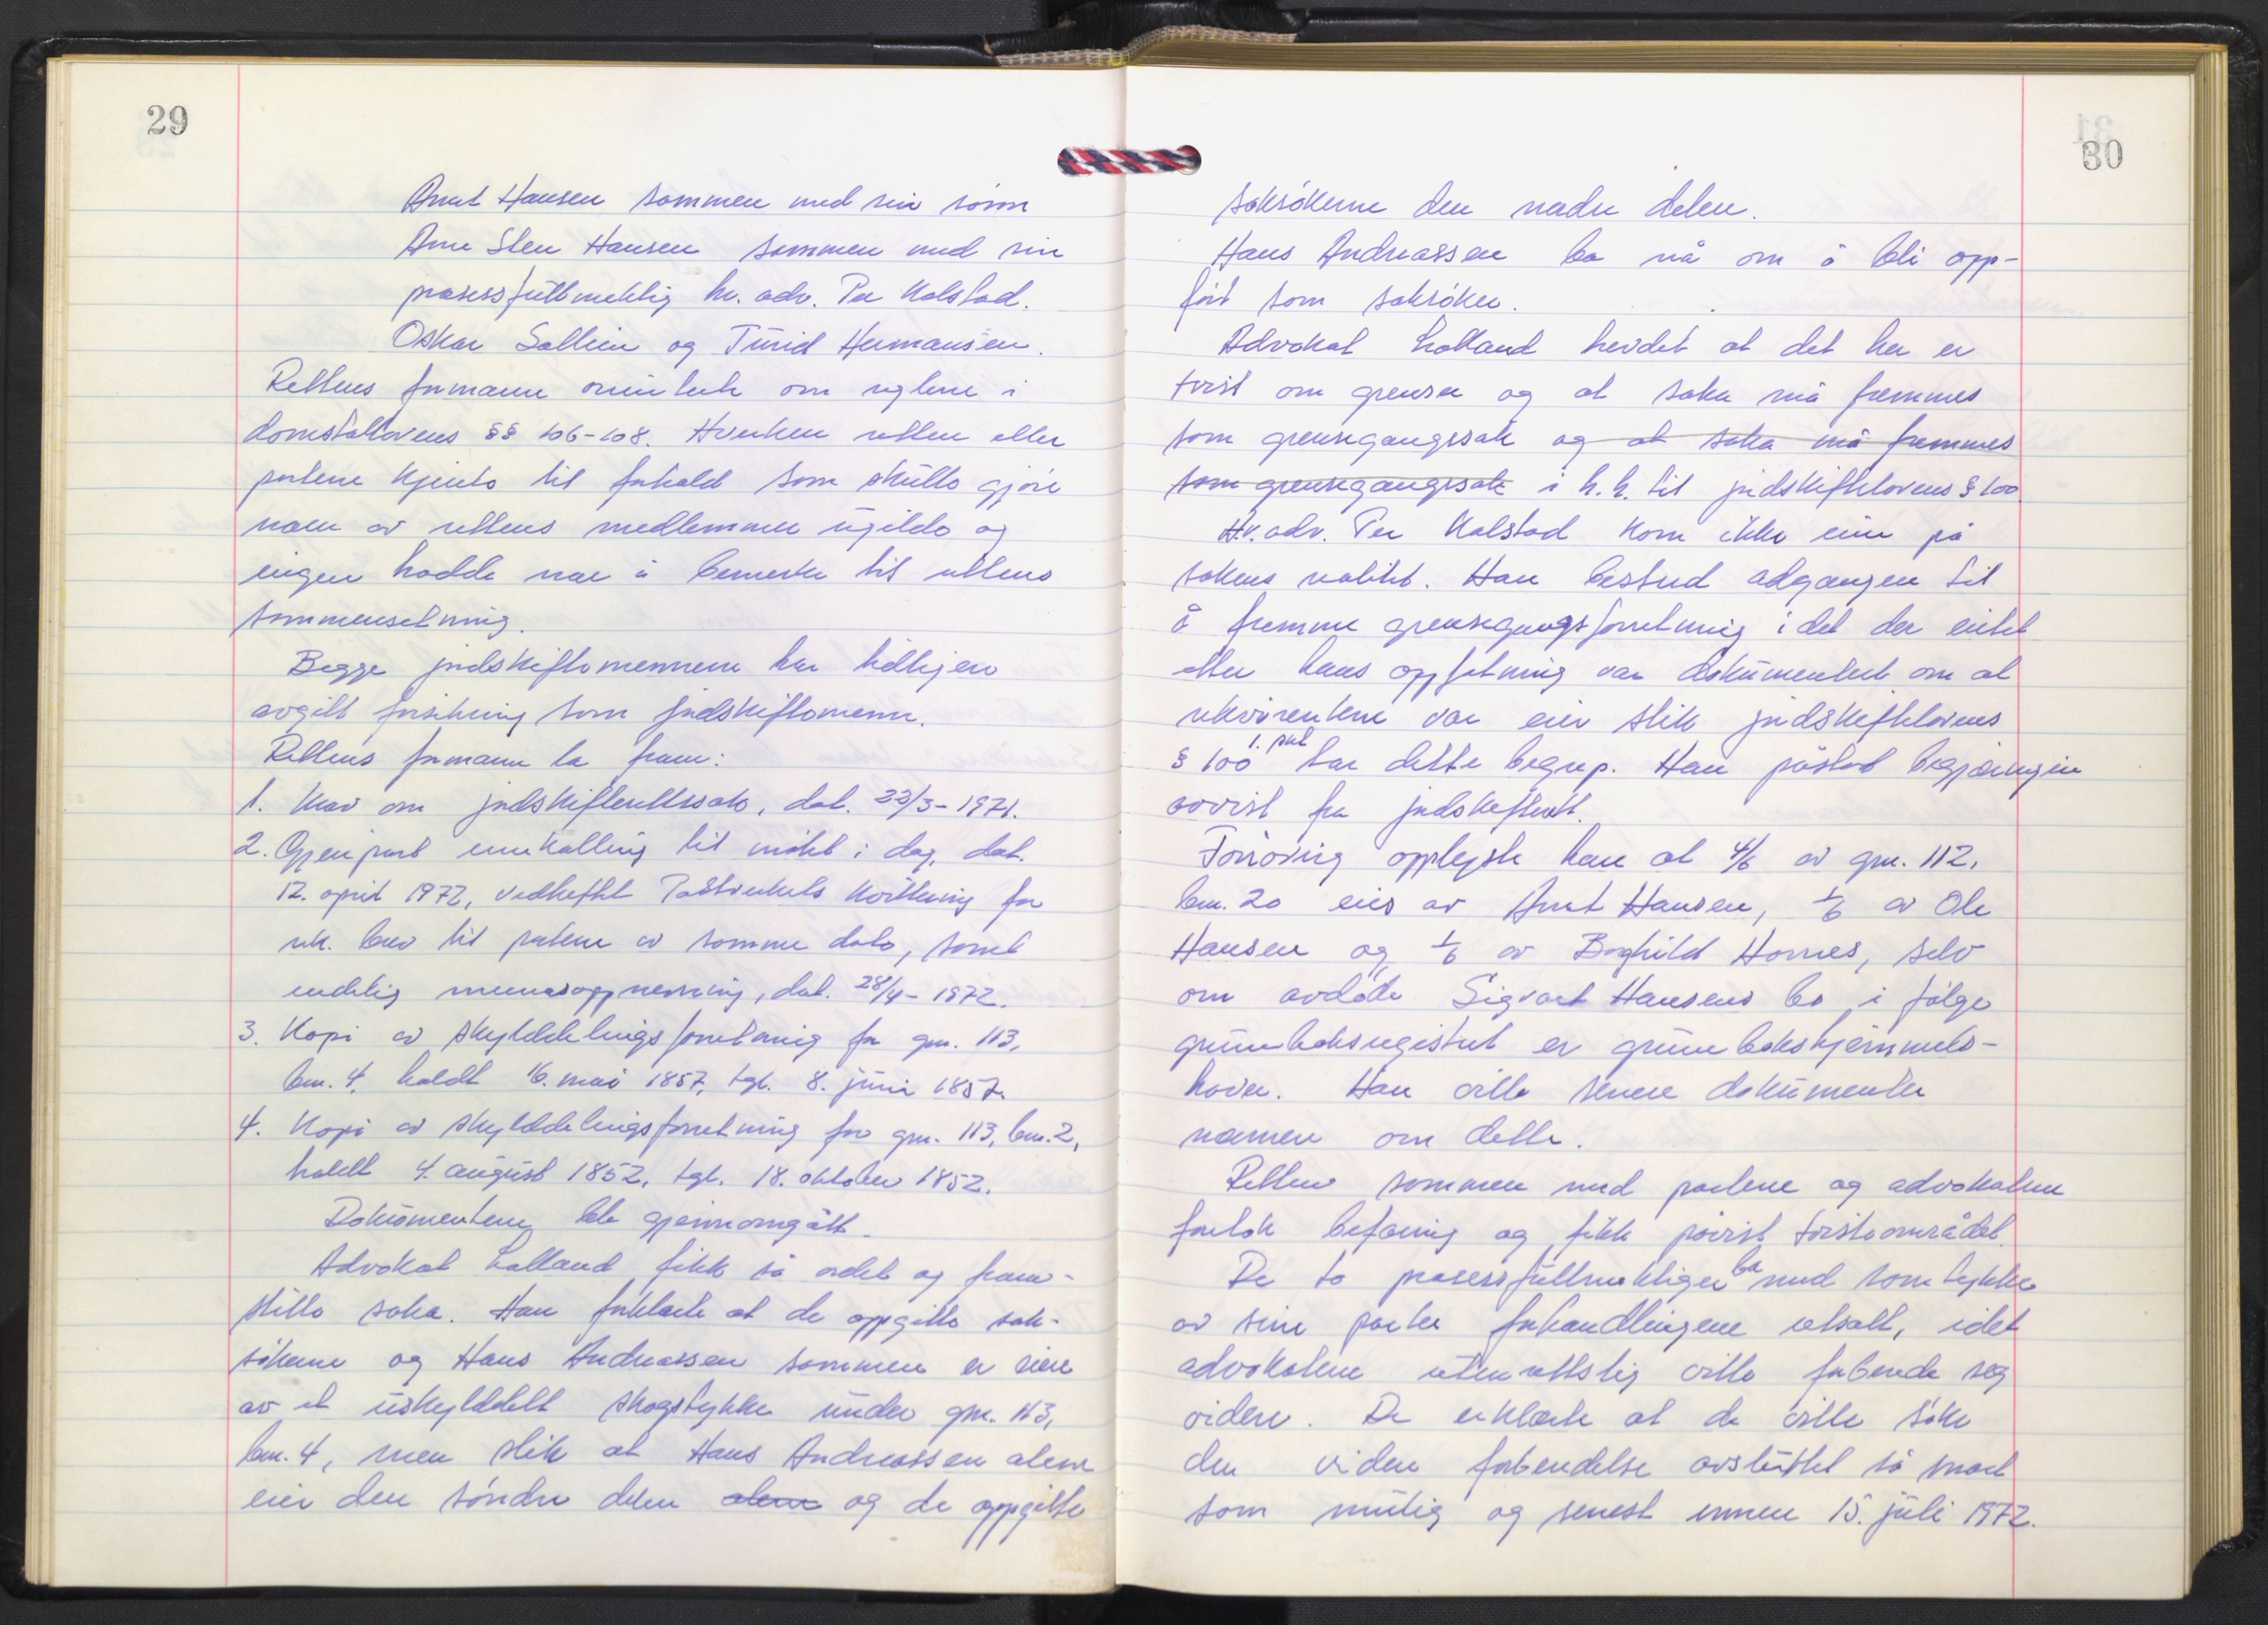 29
Arnt Hansen sammen med sin sønn
Arne Sten Hansen sammen med sin
prosessfullmektig hr. adv. Per Kolstad.
Oskar Sollien og Turid Hermansen.
Rettens formann orienterte om reglene i
domstollovens §§ 106-108. Hverken retten eller
partene kjente til forhold som skulle gjøre
noen av rettens medlemmer ugilde og
ingen hadde noe å bemerke til rettens
sammensetning.
Begge jordskiftemennene har tidligere
avgitt forsikring som jordskiftemenn.
Rettens formann la fram:
1. Krav om jordskifterettssak, dat. 22/3-1971.
2. Gjenpart innkalling til møtet i dag, dat.
12. april 1972, vedheftet Postverkets kvittering for
rek. brev til partene av samme dato, samt
endelig mannsoppnevning, dat. 28/4-1972.
3. Kopi av skylddelingsforretning for gnr. 113,
bnr. 4, holdt 16. mai 1857, tgl. 8. juni 1857.
4. Kopi av skylddelingsforretning for gnr. 113, bnr. 2,
holdt 4. august 1852, tgl. 18. oktober 1852.
Dokumentene ble gjennomgått.
Advokat Lolland fikk så ordet og frem-
stilte saka. Han forklarte at de oppgitte sak-
søkerne og Hans Andreassen sammen er eiere
av et uskylddelt skogstykke under gnr. 113,
bnr. 4, men slik at Hans Andreassen alene
eier den søndre delen alene og de oppgitte
30
saksøkerne den nordre delen.
Hans Andreassen ba nå om å bli opp-
ført som saksøker.
Advokat Lolland hevdet at det her er
tvist om grenser og at saka må fremmes
som grensegangssak og at saka må fremmes
som grensegangssak i h.h. til jordskiftelovens § 100.
Hr. adv. Per Kolstad kom ikke inn på
sakens realitet. Han bestred adgangen til
å fremme grensegangsforretning idet der intet
etter hans oppfatning var dokumentert om at
rekvirentene var eier slik jordskiftelovens
§ 100 1. pkt har dette begrep. Han påstod begjæringen
avvist fra jordskifterett.
Forøvrig opplyste han at 4/6 av gnr. 112,
bnr. 20 eies av Arnt Hansen, 1/6 av Ole
Hansen og 1/6 av Borghild Hornes, selv
om avdøde Sigvart Hansens bo i følge
grunnboksregistret er grunnbokshjemmels-
haver. Han ville senere dokumentere
nærmere om dette.
Retten sammen med partene og advokatene
foretok befaring og fikk påvist tvisteområdet.
De to prosessfullmektiger ba med samtykke
av sine parter forhandlingene utsatt, idet
advokatene utenrettslig ville forberede seg
videre. De erklærte at de ville søke
den videre forberedelse avsluttet så snart
som mulig og senest innen 15. juli 1972.